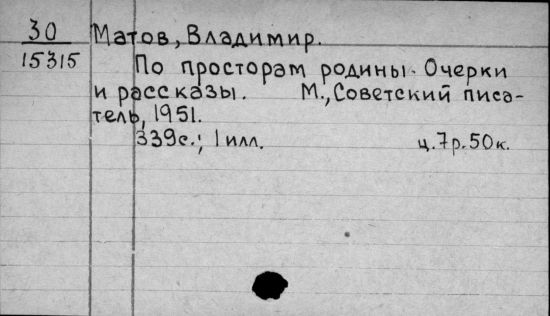 30 Матов, Владимир.
15315
По просторам родины. Очерки
и рассказы. М., Советский писа-
тель, 1951.
339с.; 1 илл. ц. 7р. 50к.